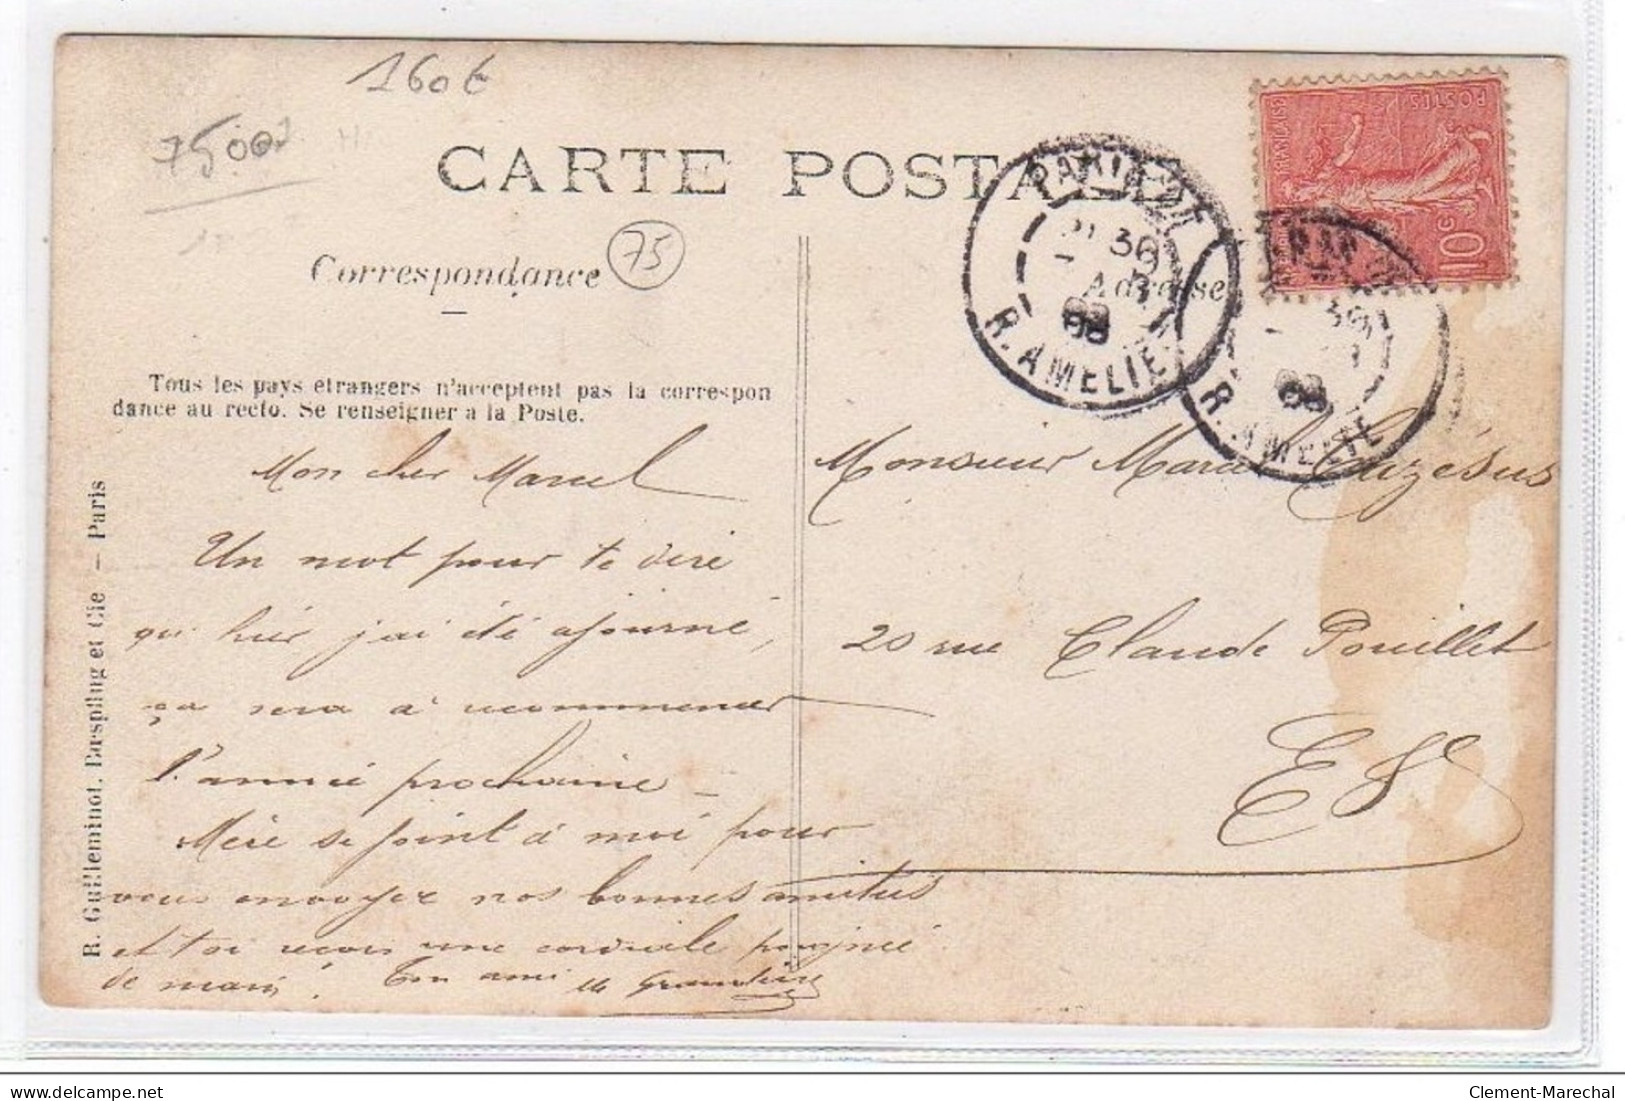 160€
75007
CARTE POSTALE
75
Correspondance
Adresse
PARIS
30
R. AMELIE
PARIS
30
R. AMELIE
POSTES
10c
Tous les pays etrangers n'acceptent pas la correspon
dance au recto. Se renseigner a la Poste.
R. Guilleminot, Bœspflug et Cie — Paris
Mon cher Marcel
Un mot pour te dire
qu' hier j'ai été ajourné,
ça sera à recommencer
l'année prochaine —
Mère se joint à moi pour
vous envoyer nos bonnes amitiés
et toi reçois une cordiale poignée
de main. Ton ami
Monsieur Marcel
20 rue Claude Pouillet
ES
delcampe.net
Clement-Marechal